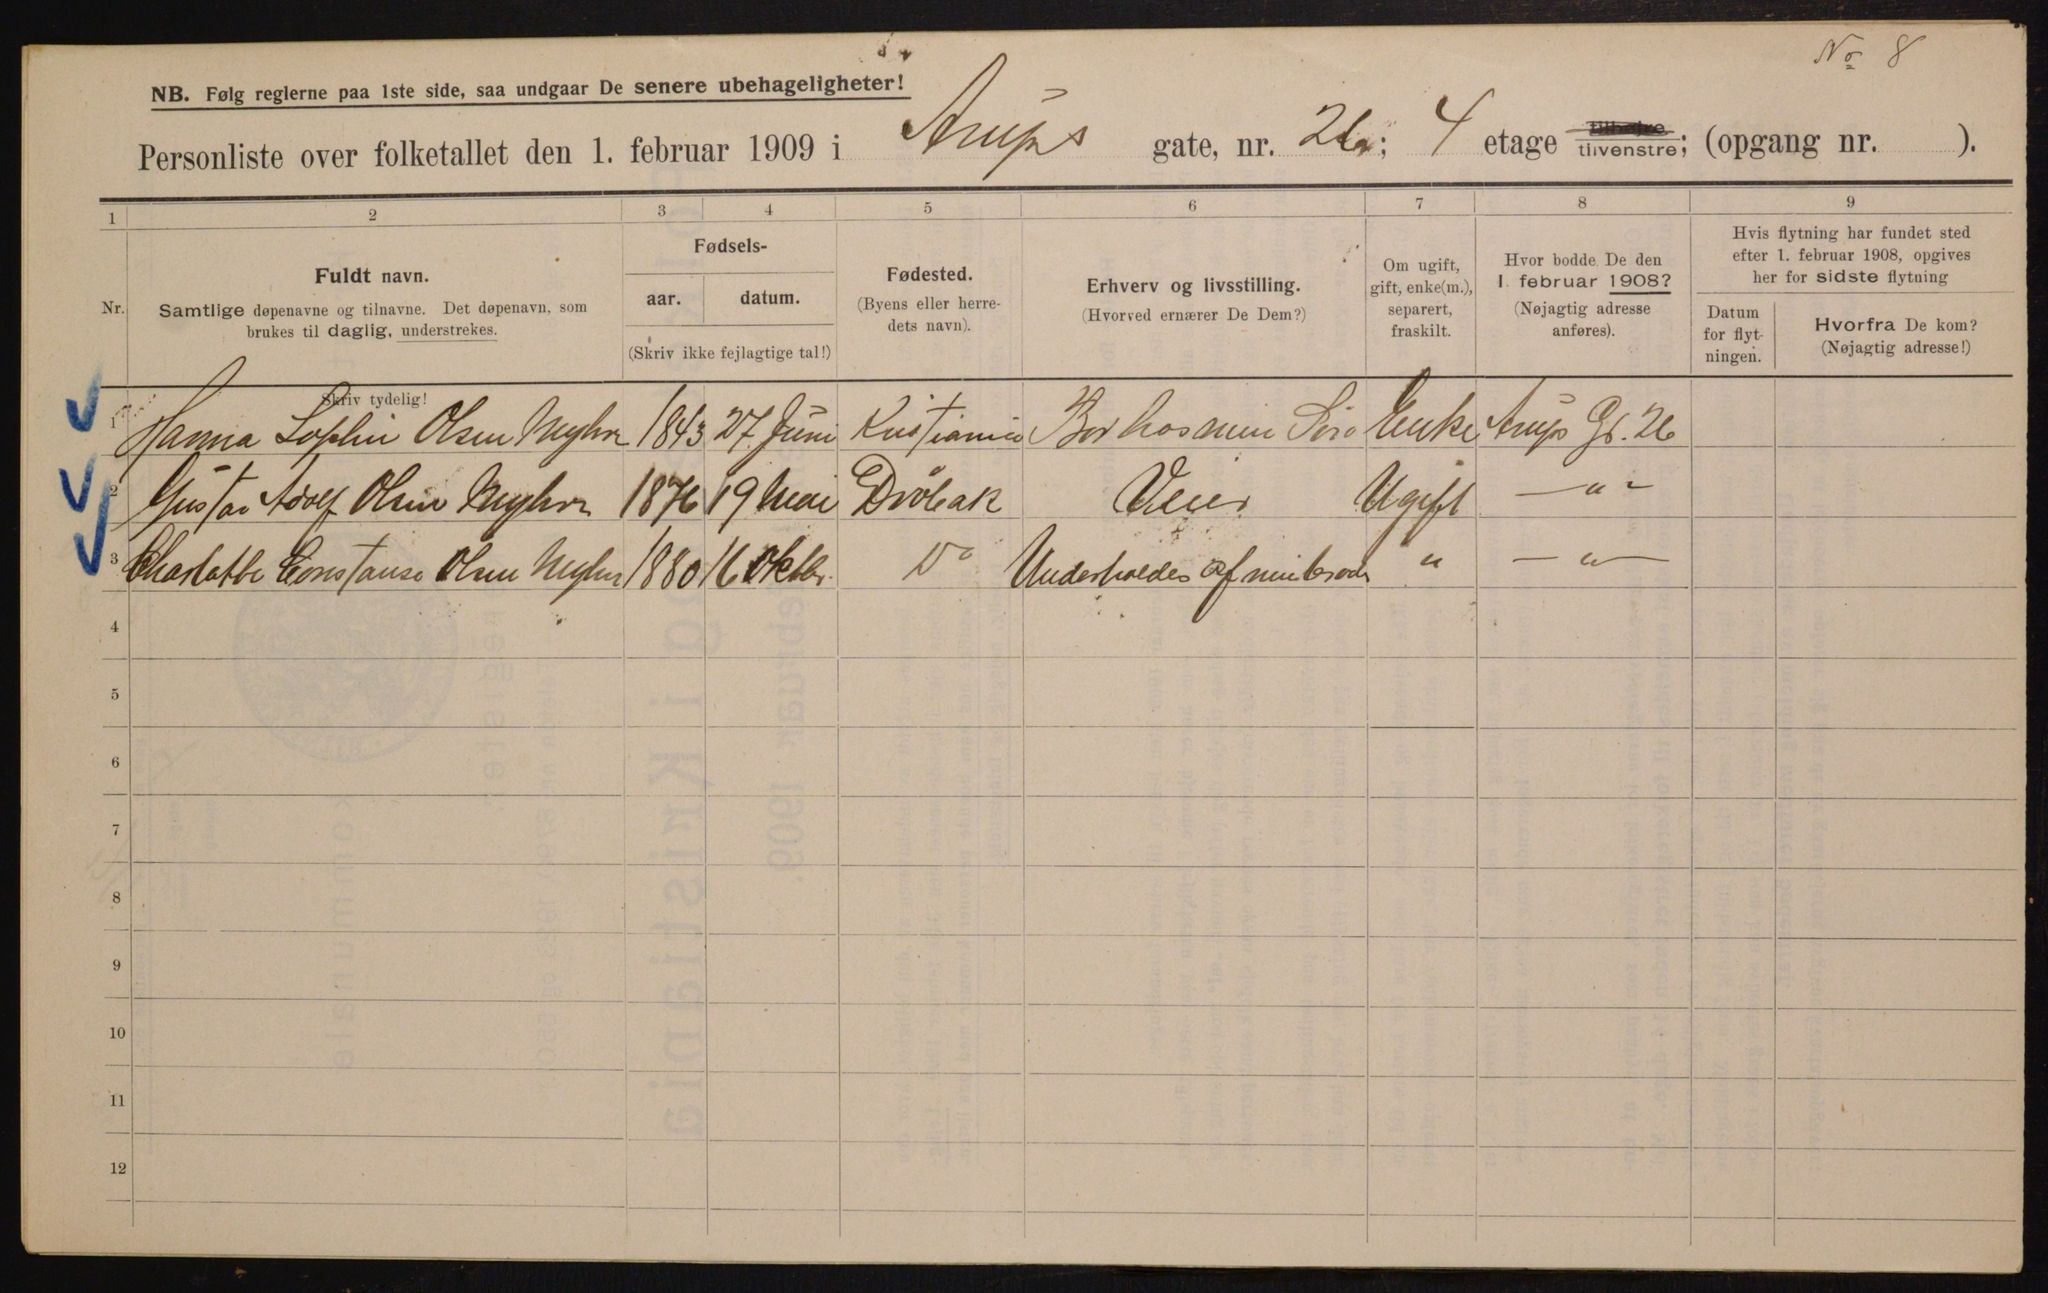 No 8
NB. Følg reglerne paa 1ste side, saa undgaar De senere ubehageligheter!
Personliste over folketallet den 1. februar 1909 i Arups gate, nr. 26; 4 etage tilhøjre tilvenstre; (opgang nr. ).
1 2 3 4 5 6 7 8 9
Nr.
Fuldt navn.
Samtlige døpenavne og tilnavne. Det døpenavn, som
brukes til daglig, understrekes.
Fødsels-
aar. datum.
(Skriv ikke fejlagtige tal!)
Fødested.
(Byens eller herre-
dets navn).
Erhverv og livsstilling.
(Hvorved ernærer De Dem?)
Om ugift,
gift, enke(m.),
separert,
fraskilt.
Hvor bodde De den
1. februar 1908?
(Nøjagtig adresse
anføres).
Hvis flytning har fundet sted
efter 1. februar 1908, opgives
her for sidste flytning
Datum
for flyt-
ningen.
Hvorfra De kom?
(Nøjagtig adresse!)
Skriv tydelig!
1 Hanna Sophie Olsen 1843 27 Juni Kristiania Bor hos min Enke Arups Gd. 26
2 Gustav Adolf Olsen 1876 19 Mai Dröbak Ugift —"-
3 Charlotte Constanse Olsen 1880 16 Oktbr. Do Underholdes af min bror " —"—
4
5
6
7
8
9
10
11
12